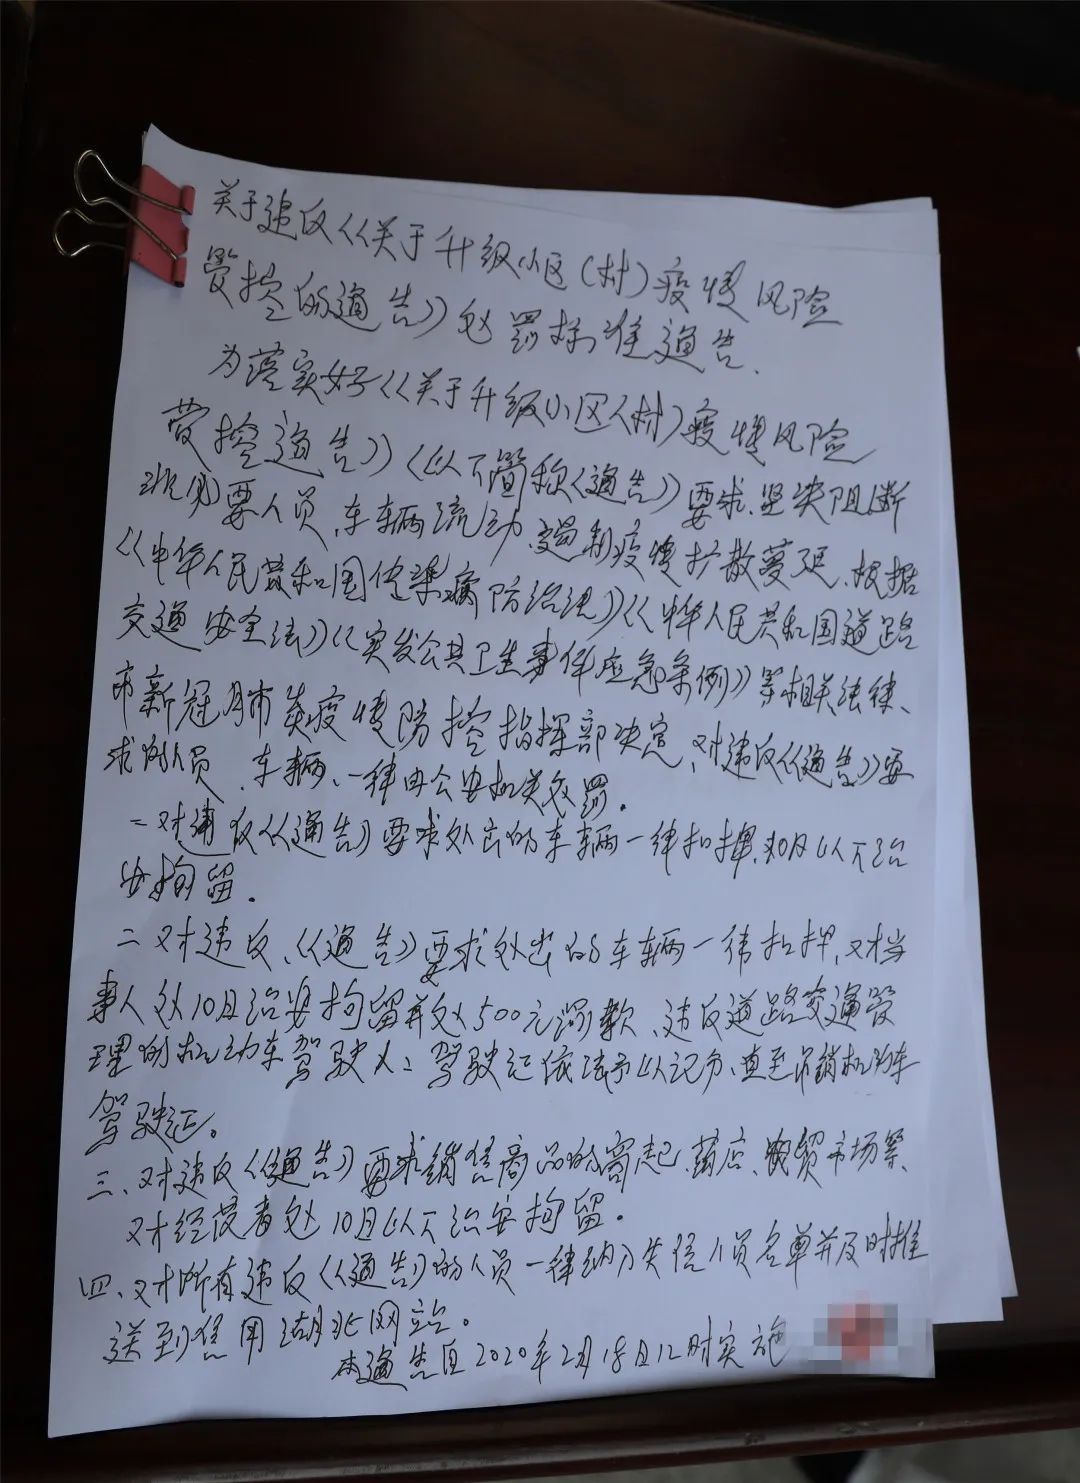 关于违反《关于升级小区(村)疫情风险
管控的通告》处罚标准通告.
为落实好《关于升级小区(村)疫情风险
管控通告》(以下简称《通告》要求.坚决阻断
要人员、车辆流动、遏制疫情扩散蔓延、根据
《中华人民共和国传染病防治法》《中华人民共和国道路
交通安全法》《突发公共卫生事件应急条例》等相关法律、
市新冠肺炎疫情防控指挥部决定、对违反《通告》要
求的人员、车辆、一律由公安机关处罚.
一对违反《通告》要求外出的车辆一律扣押.10日以下治
安拘留.
二对违反、《通告》要求外出的车辆一律扣押,对当
事人处10日治安拘留并处500元罚款、违反道路交通管
理的机动车驾驶人、驾驶证依法予以记分、直至吊销机动车
驾驶证。
三、对违反《通告》要求销售商品的商超、药店、农贸市场等、
对经营者处10日以下治安拘留.
四、对所有违反《通告》的人员一律纳入失信人员名单并及时推
送到信用湖北网站。
本通告自2020年2月18日12时实施